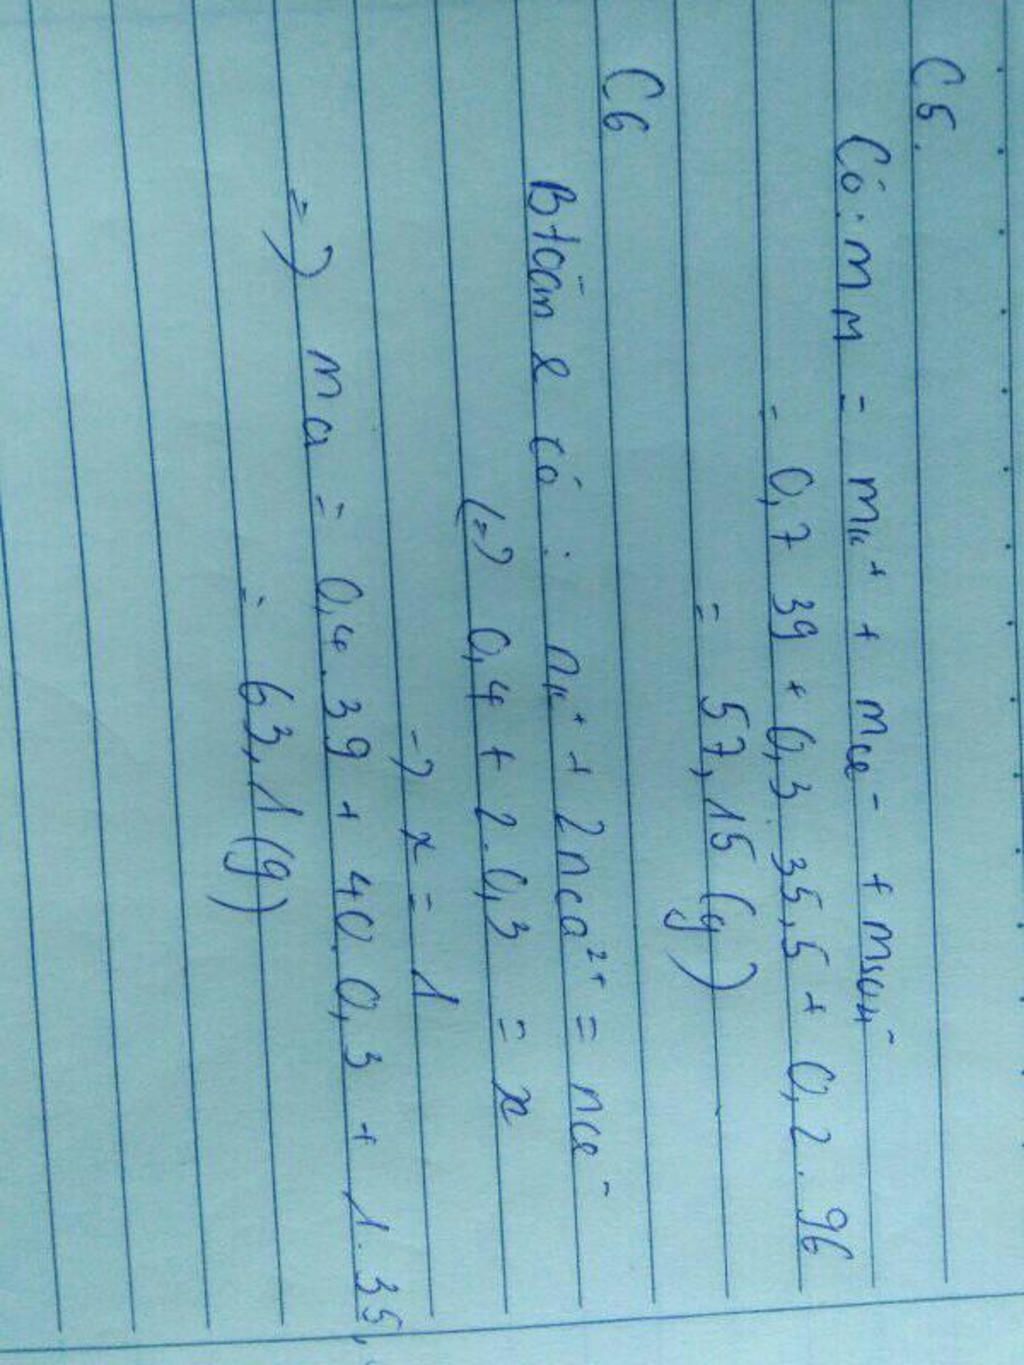 C5.
Có: mM = mK+ + mCl- + mSO4-
= 0,7 39 + 0,3 35,5 + 0,2 . 96
= 57,15 (g)
C6
Btoàn e có : nK+ + 2nCa2+ = nCl-
(=) 0,4 + 2.0,3 = x
-> x = 1
=> ma = 0,4.39 + 40.0,3 + 1.35,
= 63,1 (g)